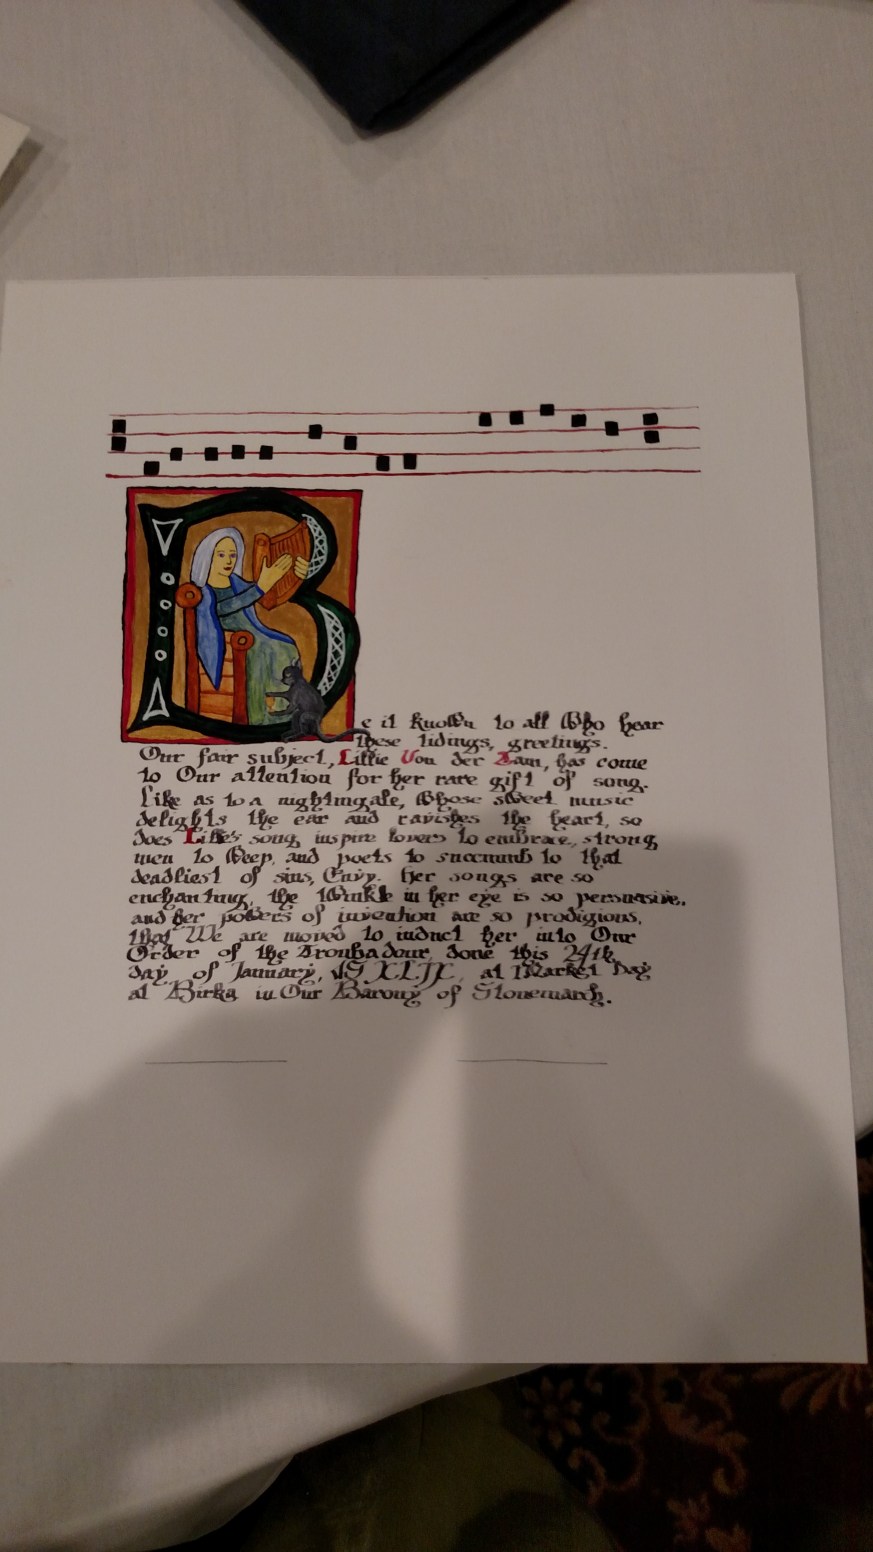 Be it known to all who hear
these tidings, greetings.
Our fair subject, Lillie Von der Tam, has come
to Our attention for her rare gift of song.
Like as to a nightingale, whose sweet music
delights the ear and ravishes the heart, so
does Lillie's song inspire lovers to embrace, strong
men to weep, and poets to succumb to that
deadliest of sins, Envy. Her songs are so
enchanting, the twinkle in her eye is so persuasive,
and her powers of invention are so prodigious,
that We are moved to induct her into Our
Order of the Troubadour, done this 24th
day of January, AS XLIX, at Market Day
at Birka in Our Barony of Stonemarch.